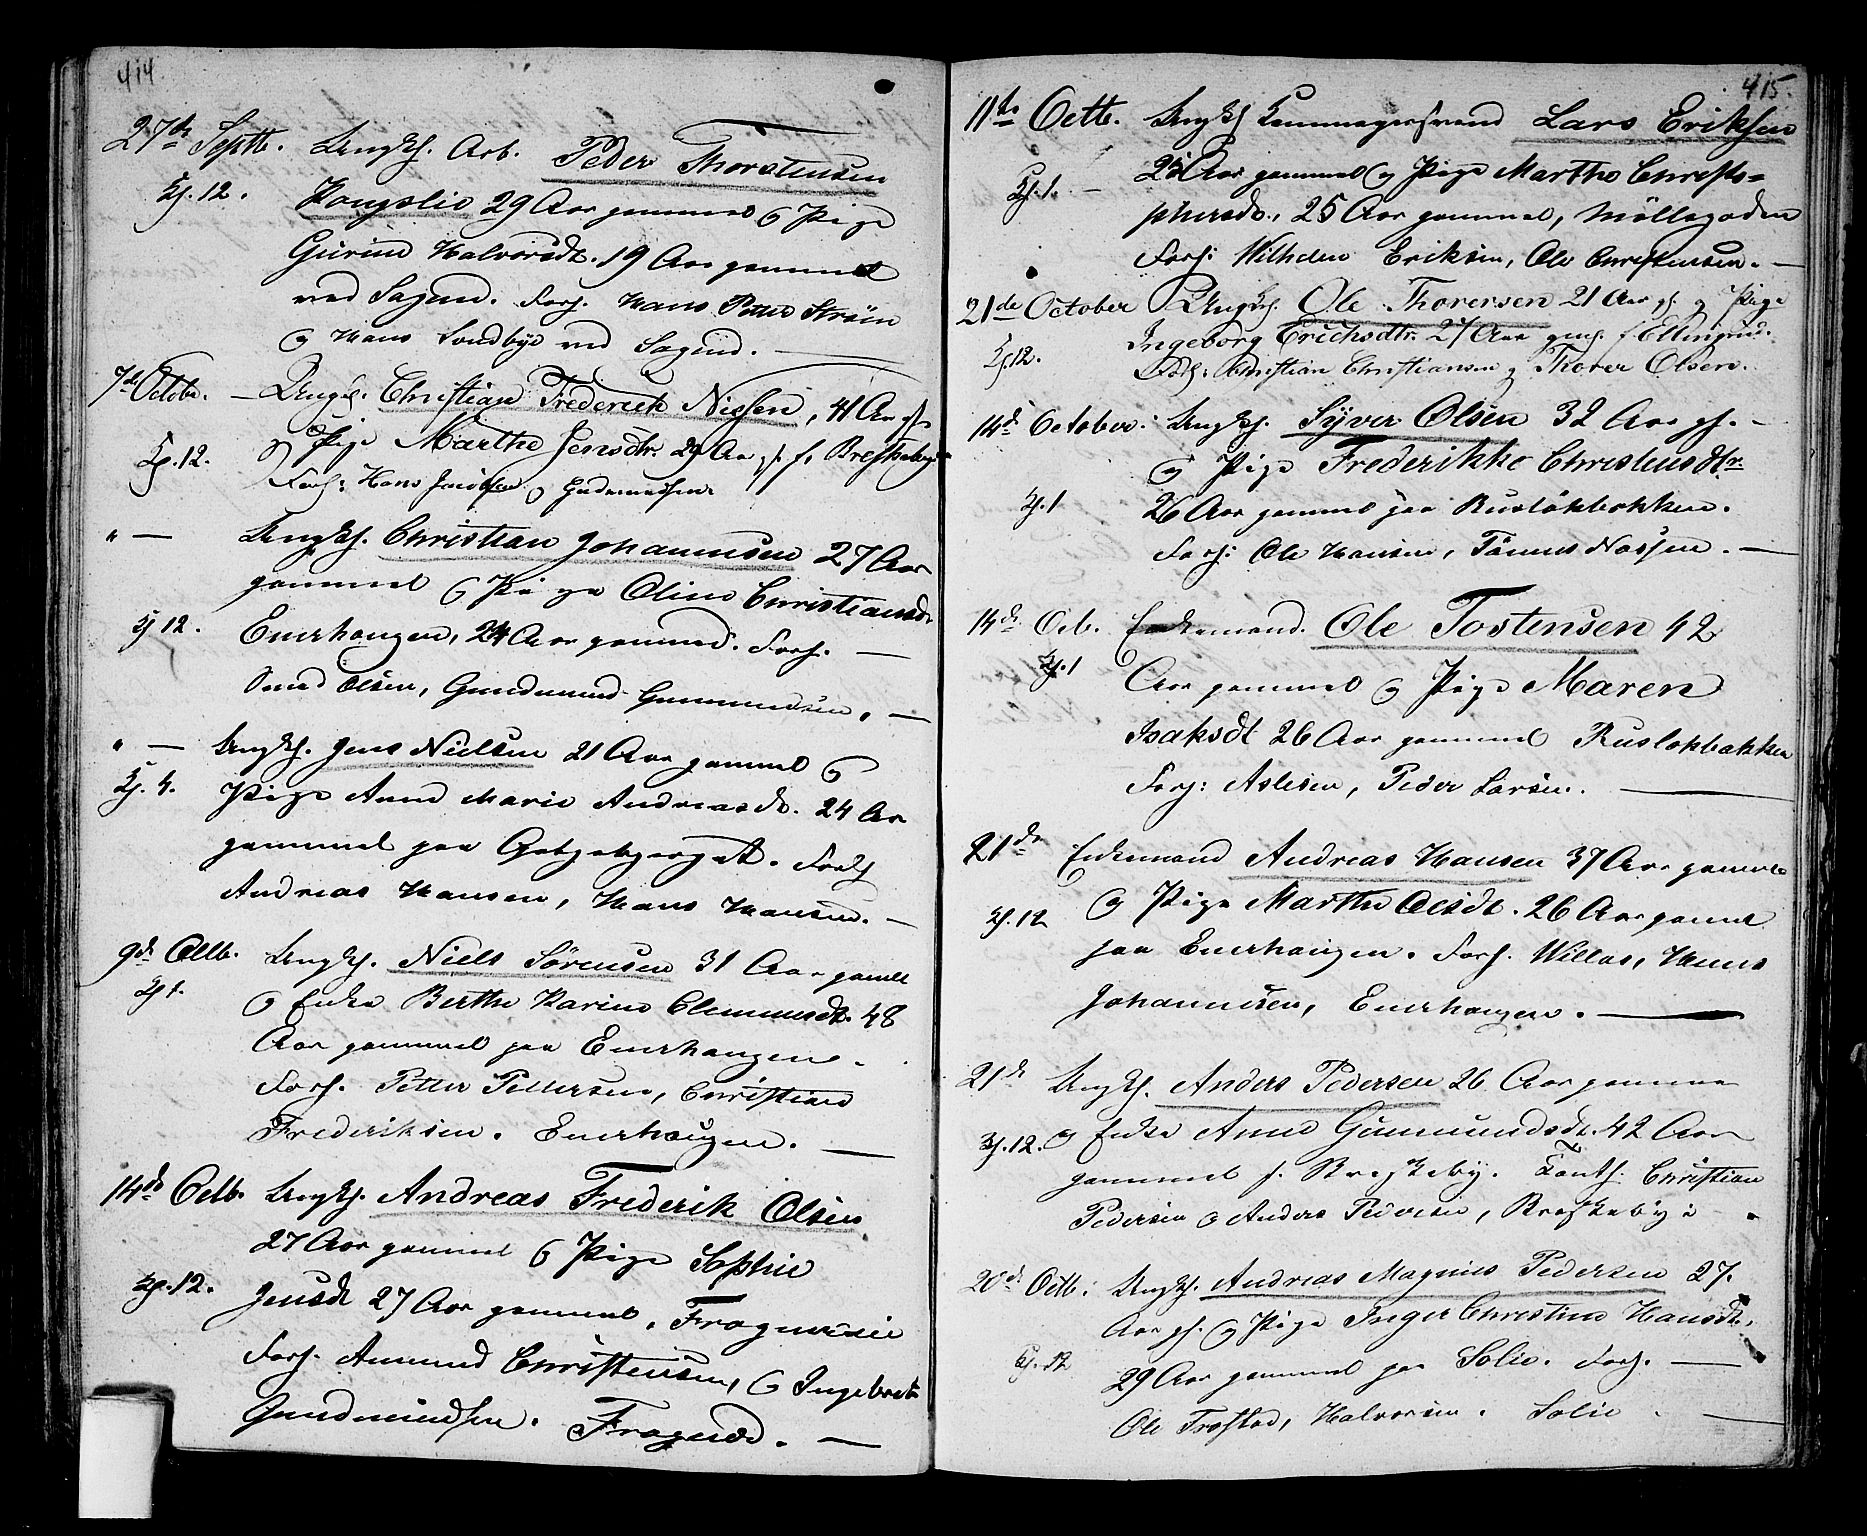 414
27de Septb. Ungkl. Arb. Peder Thorstensen
Kongslie 29 Aar gammel og Pige
Gurine Halvorsdt. 19 Aar gammel
ved Sagene. Forl. Hans Petter Strøm
og Hans Lundbye ved Sagene.
7de Octobr. Ungkl. Christian Frederick Nissen, 41 Aar gl.
og Pige Marthe Jensdtr. 29 Aar gl. f.
Forl: Hans Jacobsen og Gudmundsen
" — Ungkl. Christian Johannesen 27 Aar
gammel og Pige Oline Christiansdt
Enerhaugen, 24 Aar gammel. Forl.
Olsen, Gundmund Gunmundsen.
" — Ungkl. Jens Nielsen 21 Aar gammel og
Pige Anne Marie Andreasdt. 24 Aar
gammel paa. Forl
Andreas Hansen, Hans Hansen.
9de Octb. Ungkl. Niels Sørensen 31 Aar gamle
og Enke Berthe Karine Clemmesdt. 48
Aar gammel paa Enerhaugen.
Forl. Petter Pettersen, Christian
Frederiksen. Enerhaugen.
14de Octb. Ungkl. Andreas Frederik Olsen
27 Aar gammel og Pige Sophie
Jensdt 27 Aar gammel, Frogner
Forl. Amund Christensen, og Ingebret
Gundmundsen. Frogner.
415.
11te Octb. Ungkl Lars Eriksen
25 Aar gammel og Pige Marthe Christo-
phersdt., 25 Aar gammel, Møllegaden
Forl: Wilhelm Eriksen, Ole Christensen.
21de October Ungkl. Ole Thoresen 21 Aar gl. og Pige
Ingeborg Erichsdtr. 27 Aar gml. f
Forl: Christian Christiansen og Thorer Olsen.
14de October: Ungkl. Syver Olsen 32 Aar gl.
og Pige Frederikke Christensdtr.
26 Aar gammel paa Rusløkbakken.
Forl: Ole Hansen, Tønnes Nassen.
14de Ocb. Enkemand. Ole Tostensen 42
Aar gammel og Pige Maren
Isaksdt 26 Aar gammel Rusløkbakken
Forl: Aslesen, Peder Larsen.
21de Enkemand Andreas Hansen 37 Aar gammel
og Pige Marthe Olsdt. 26 Aar gammel
paa Enerhaugen. Forl. Willas, Hans
Johannesen, Enerhaugen.
21de Ungkl. Anders Pedersen 26 Aar gammel
og Enke Anne Gunmundsdt. 42 Aar
gammel f. Breskeby. Forl. Christian
Pedersen og Anders Pedersen, Breskeby
20de Octb: Ungkl. Andreas Magnus Pedersen 27.
Aar gl. og Pige Inger Christine Hansdt.
29 Aar gammel paa Solie. Forl.
Ole Trøstad, Halvorsen. Solie